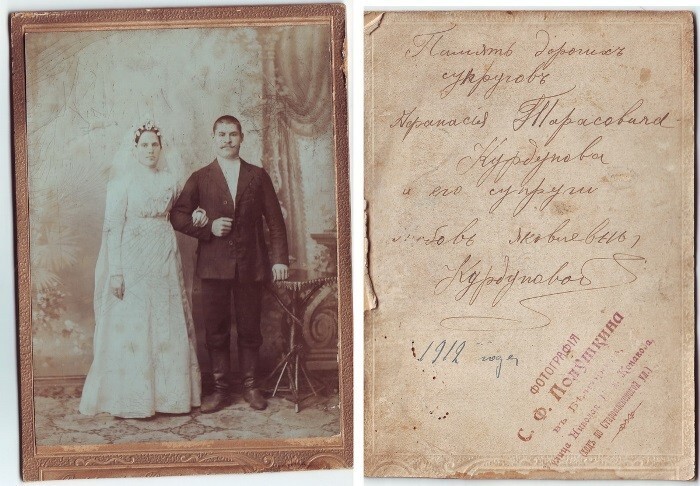 Память дорогихъ
супруговъ
Афанасія Тарасовича
Курдупова
и его супруги
Любовь Яковлевны
Курдуповой
1912 года
ФОТОГРАФІЯ
С. Ф. Полуткина
въ
улица